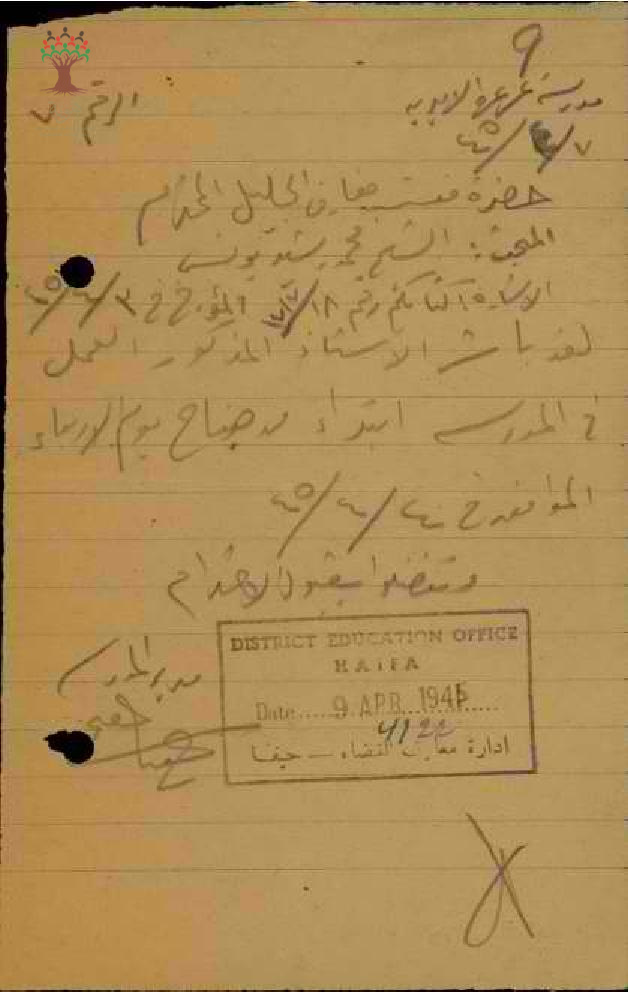 ٩
مدرسة عرعره الاميريه
الرقم ٧
٧/٤/٤٥
حضرة مفتش معارف الجليل المحترم
المبحث: الشيخ محمد رشد يونس
الاشارة: كتابكم رقم ١٨/ المؤرخ في ٣/٤/٤٥
لقد باشر الاستاذ المذكور العمل
في المدرسه ابتداء من صباح يوم الاربعاء
الموافق في ٤/٤/٤٥
وتفضلوا بقبول الاحترام
مدير المدرسه
DISTRICT EDUCATION OFFICE
HAIFA
Date..... 9 APR. 1945
4122
ادارة معارف القضاء — حيفا